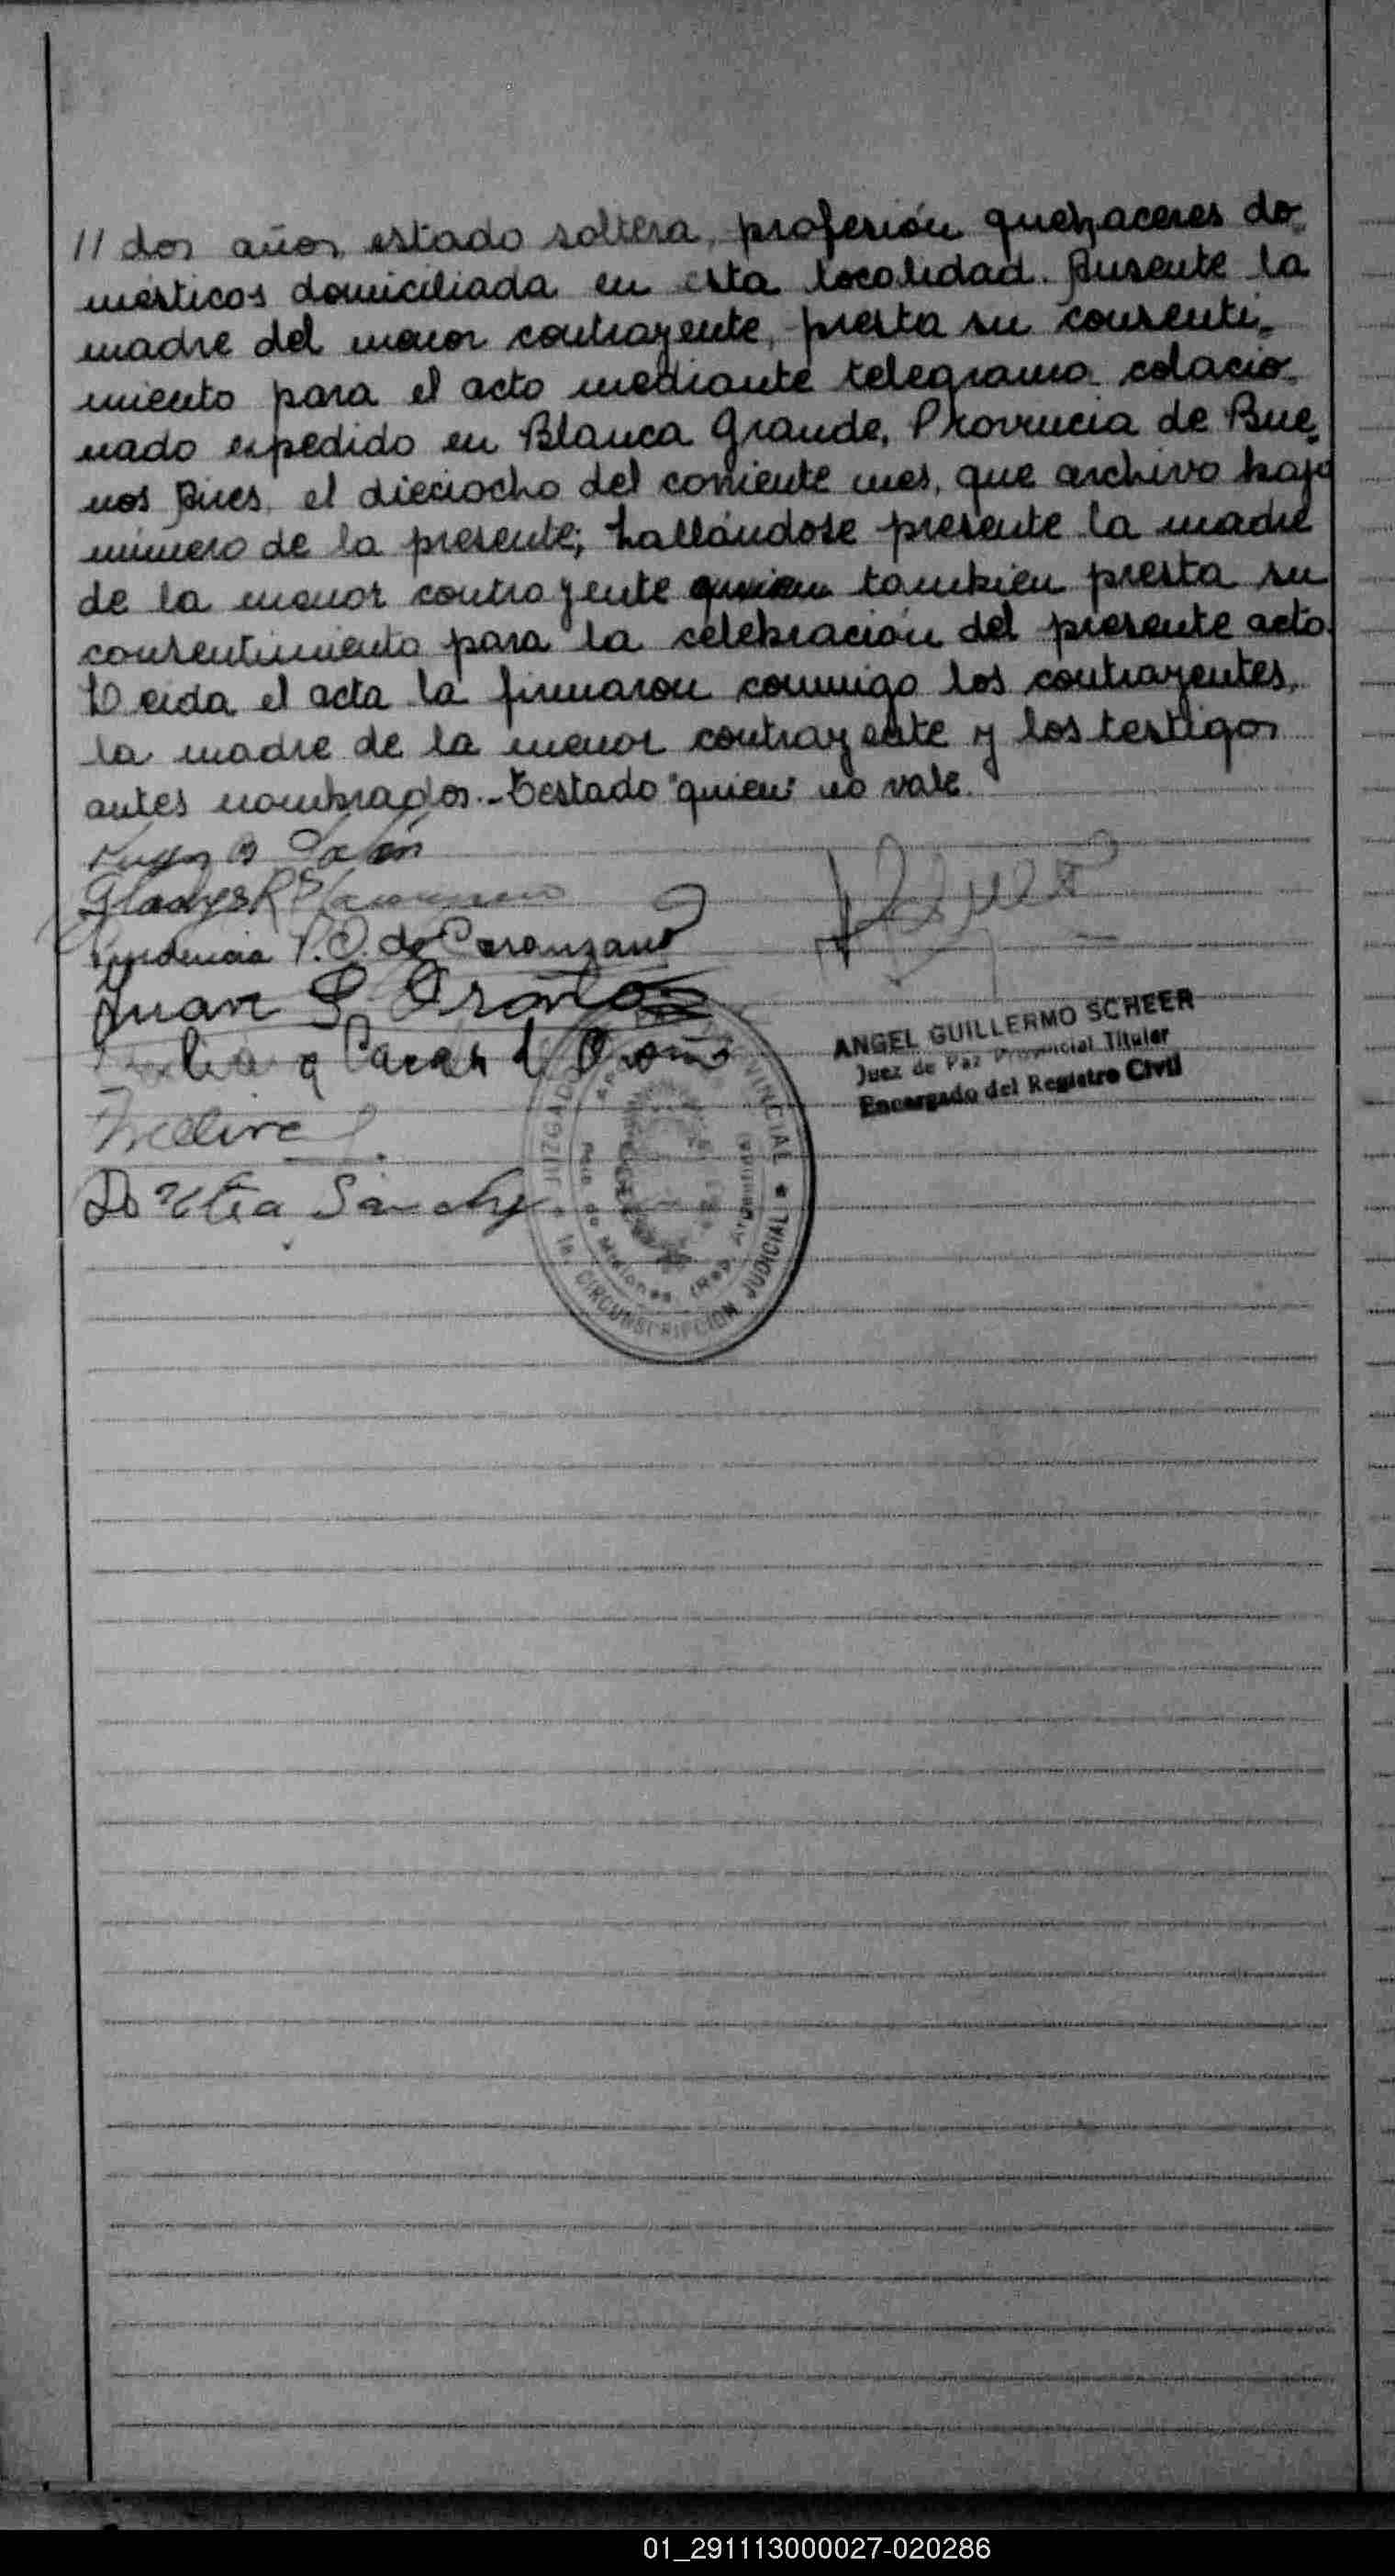 // dos años, estado soltera, profesión quehaceres do-
mésticos domiciliada en esta localidad. Ausente la
madre del menor contrayente, presta su consenti-
miento para el acto mediante telegrama colacio-
nado expedido en Blanca Grande, Provincia de Bue-
nos Aires, el dieciocho del corriente mes, que archivo bajo
número de la presente; hallándose presente la madre
de la menor contrayente quien tambien presta su
consentimiento para la celebración del presente acto.
Leida el acta la firmaron conmigo los contrayentes,
la madre de la menor contrayente y los testigos
antes nombrados.- Testado "quien" no vale.
Gladys R
P. O. de Caranzano
Juan S. Oroño
de Oroño
Sanchez
ANGEL GUILLERMO SCHEER
Juez de Paz Provincial Titular
Encargado del Registro Civil
JUZGADO DE PAZ PROVINCIAL
1a. CIRCUNSCRIPCION JUDICIAL
Pcia. de Misiones (Rep. Argentina)
01_291113000027-020286